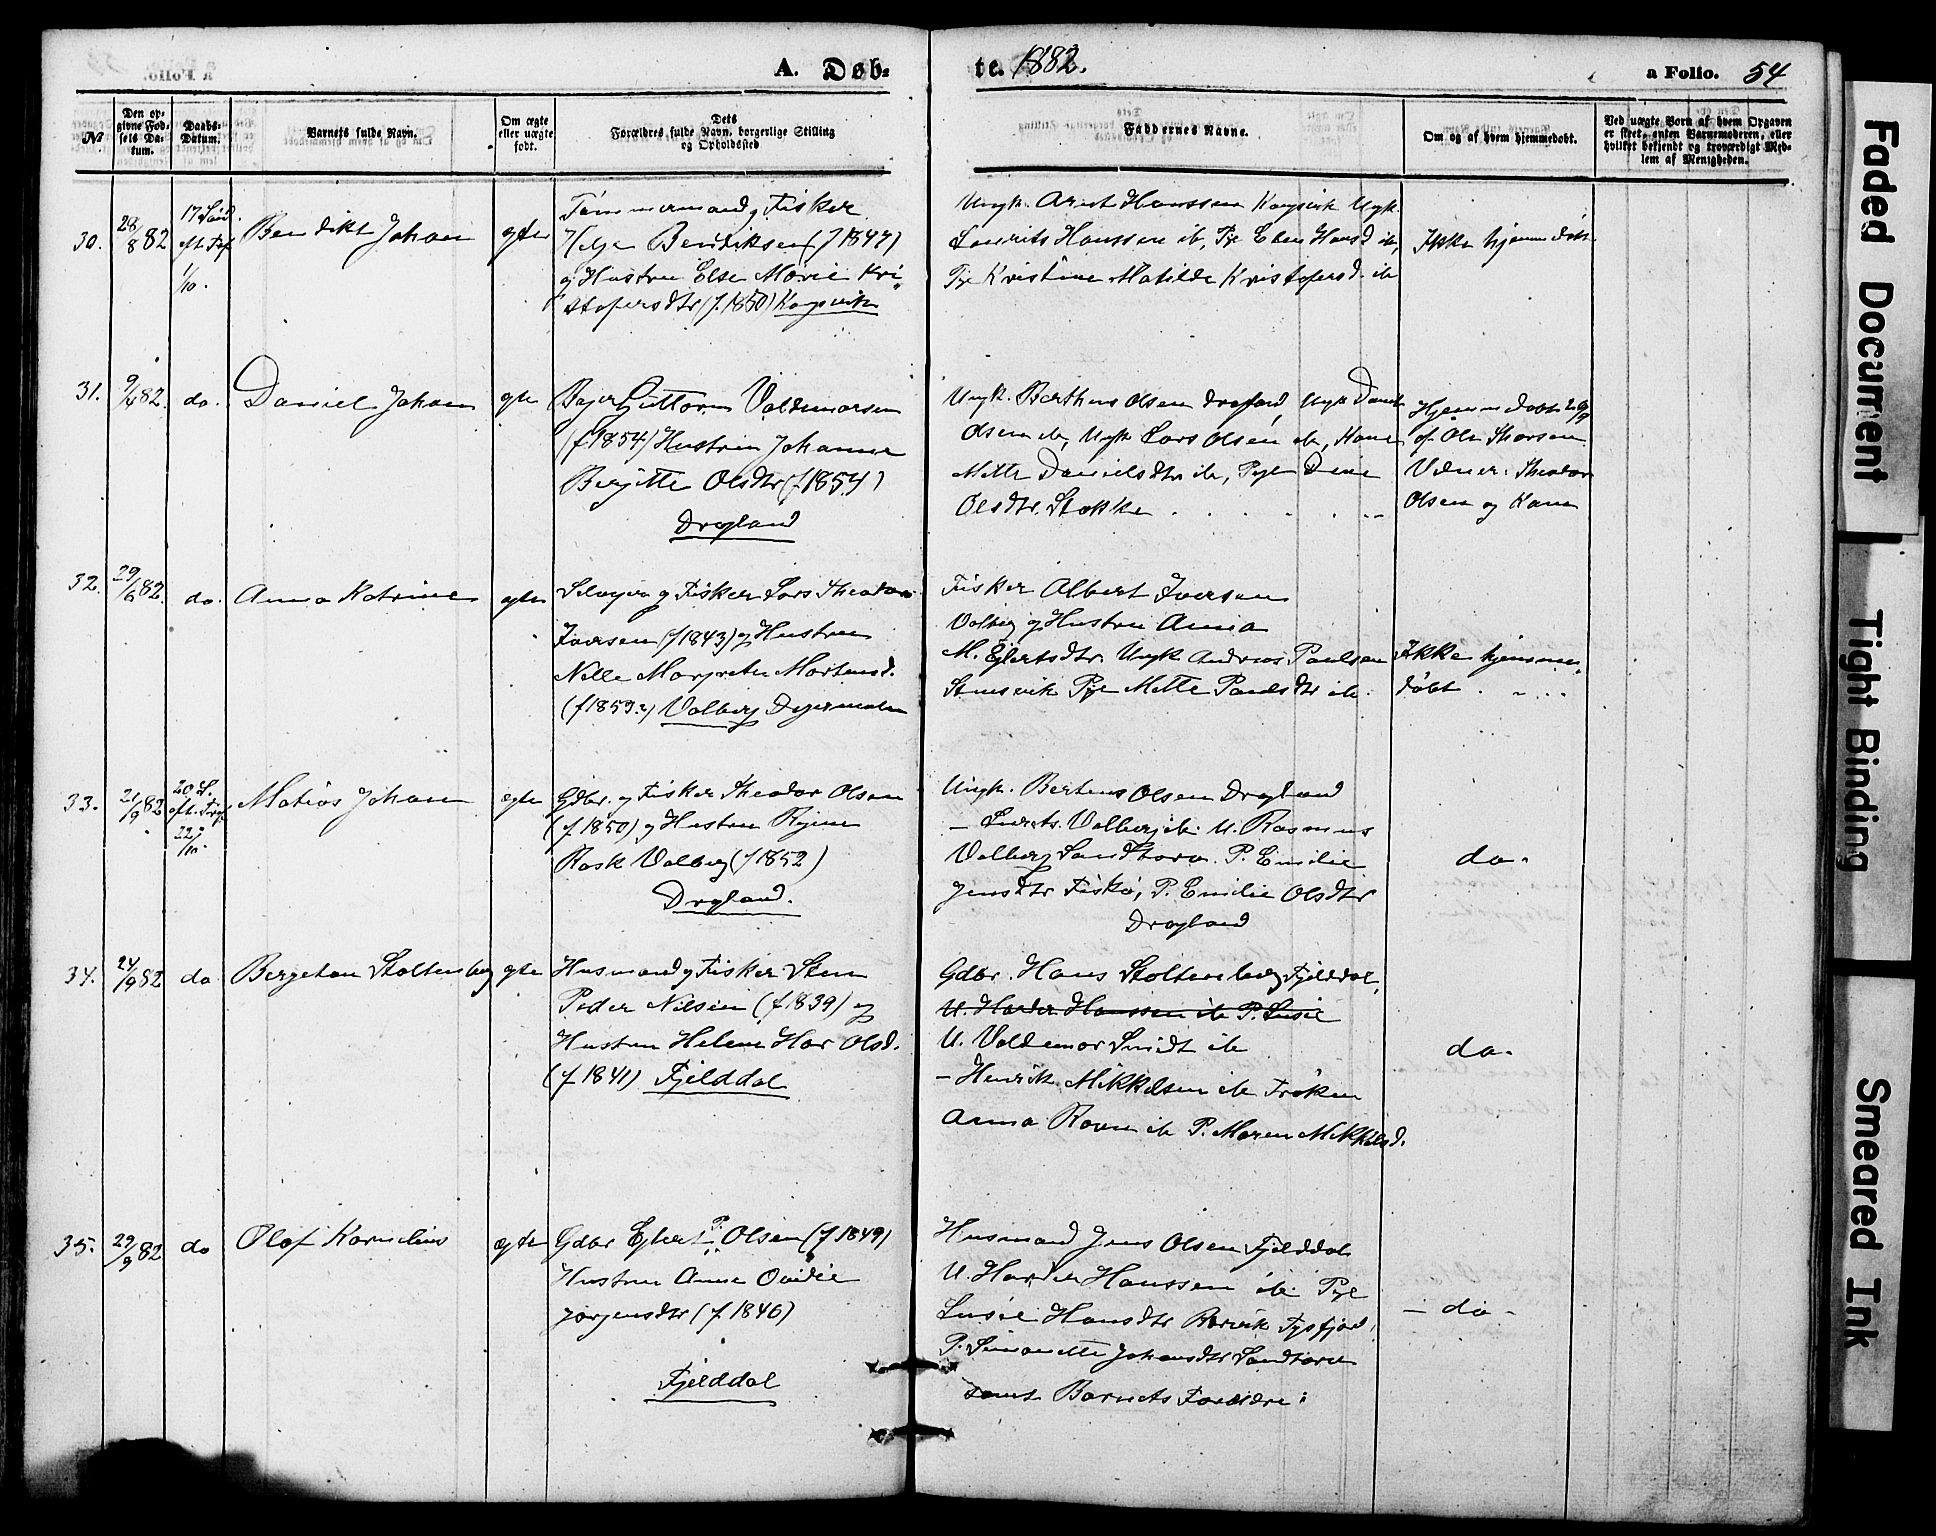 A. Døb-
te. 1882.
a Folio. 54
№
Den op-
givne Fød-
sels Da-
tum.
Daabs-
Datum.
Barnets fulde Navn.
Om ægte
eller uægte
født.
Dets
Forældres fulde Navn, borgerlige Stilling
og Opholdssted
Faddernes Navne.
Om og af hvem hjemmedøbt.
Ved uægte Børn af hvem Opgaven
er skeet, enten Barnemoderen, eller
hvilket bekjendt og troværdigt Med-
lem af Menigheden.
30.
28/8 82
17 Sønd.
eft. Tref
1/10.
Bendikt Johan
ægte
Tømmermand og Fisker
Helge Bendiksen (f 1847)
og Hustru Else Marie Kri-
stofersdtr (f. 1850) Kongsvik
Ungk. Arnt Hanssen Kongsvik Ungk.
Laurits Hanssen ib, Pge Ellen Hansd ib,
Pge Kristine Matilde Kristofersd. ib
Ikke hjemmedøbt
31.
9/4 82.
do.
Daniel Johan
gte
Guttorm Valdemarsen
(f 1854) Hustru Johanna
Birgitte Olsdtr (f 1854)
Drogland
Ungk. Berthus Olsen Drogland, Ungk Daniel
Olsen ib, Ungk Lars Olsen ib, Kone
Mette Danielsdtr ib, Pge
Olsdtr. Stokke
Hjemmedøbt
af Ole Thorsen.
Vidner: Theodor
Olsen og Kone
32.
29/6 82.
do.
Anna Katrine
ægte
Selveier og Fisker Lars Theodor
Iversen (f 1843) og Hustru
Nille Margrethe Mortensd.
(f 1859) Valberg
Fisker Albert Iversen
Valberg og Hustru Anna
M. Ejlertsdtr. Ungk Andreas Paulsen
Pge Mette Paulsdtr ib.
Ikke hjemme-
døbt
33.
21/9 82
20 S.
eft. Tref
22/10.
Matias Johan
ægte
Gdbr. og Fisker Theodor Olsen
(f. 1850) og Hustru
Rask Valberg (f 1852)
Drogland.
Ungk. Bertens Olsen Drogland
— Laurits. Valberg ib. U. Rasmus
Valberg Sandtorv. P. Emilie
Jensdtr Fiskø, P. Emilie Olsdtr
Drogland
do.
34.
24/9 82
do
Bergeton Stoltenberg
gte
Husmand og Fisker Sten
Peder Nilsen (f. 1839) og
Hustru Helene Olsd.
(f. 1841) Fjelddal
Gdbr. Hans Stoltenberg Fjelddal,
U. Harder Hanssen ib P. Lusie
U. Valdemar Smidt ib
— Henrik Mikkelsen ib Frøken
Anna Ravn ib P. Maren Mikkelsd.
do.
35.
29/9 82
do
Olaf Kornelius
ægte
Gdbr Ejlert P. Olsen (f 1849)
Hustru Anne Ovidie
Jørgensdtr (f. 1846)
Fjelddal
Husmand Jens Olsen Fjelddal
U. Harder Hanssen ib. Pge
Lusie Hansdtr Tysfjord,
P. Simonette Johansdtr Sandtorv
samt Barnets Forældre.
— do —
Faded Document
Tight Binding
Smeared Ink